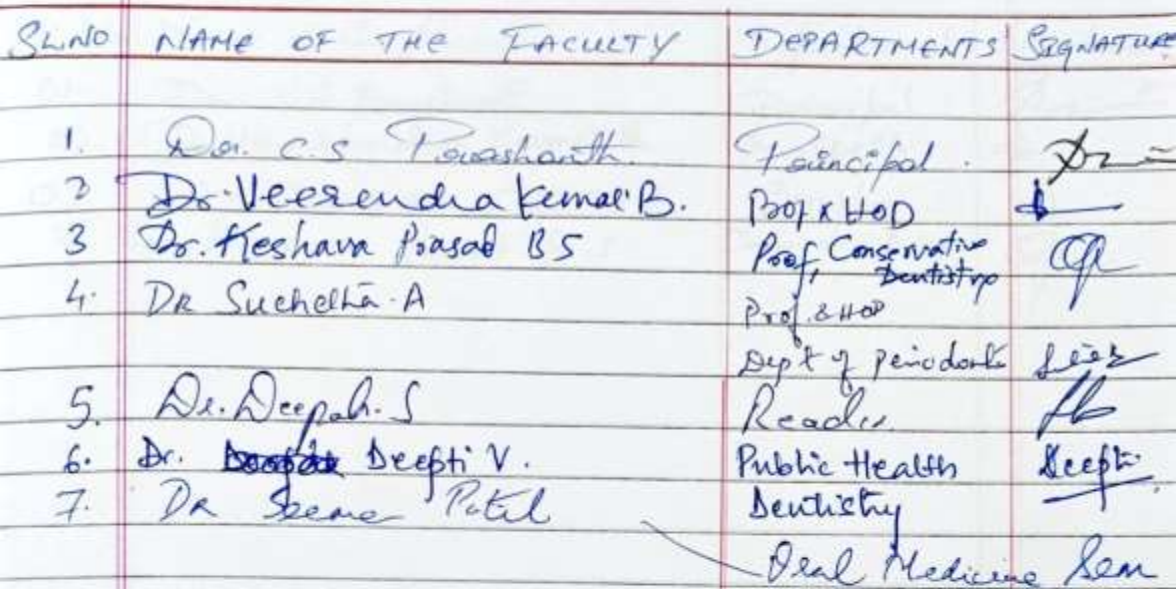 SL.NO NAME OF THE FACULTY DEPARTMENTS SIGNATURE
1. Dr. C.S Prashanth. Principal.
2 Dr. Veerendra Kumar B. Prof & HOD
3 Dr. Keshava Prasad BS Prof, Conservative
Dentistry
4. DR Suchetha A Prof. & HOD
Dep't of periodontics
5. Dr. Deepak. S Reader
6. Dr. Deepti V. Public Health Deepti
7. DR Seema Patil Dentistry
Oral Medicine